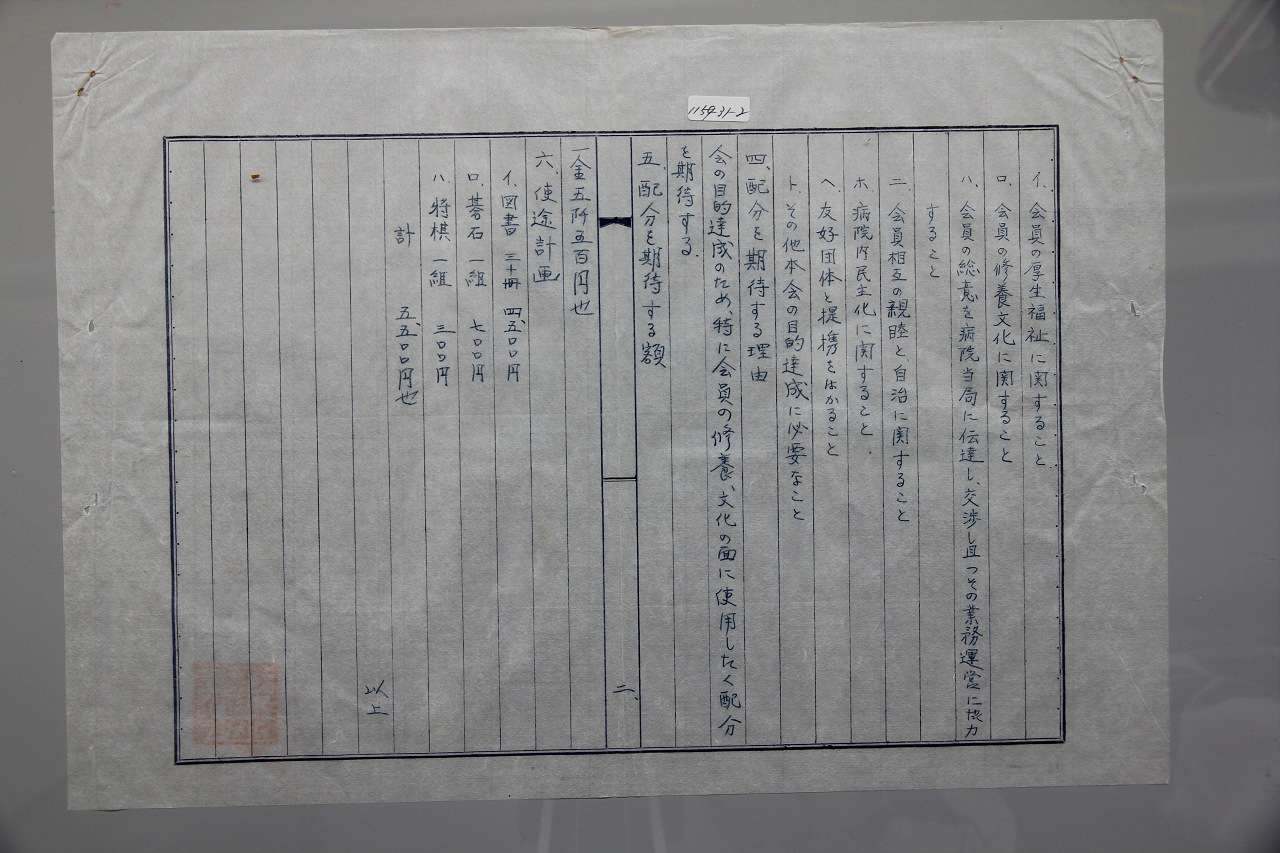 1154-31-2
イ、会員の厚生福祉に関すること
ロ、会員の修養文化に関すること
ハ、会員の総意を病院当局に伝達し、交渉し且つその業務運営に協力
すること
ニ、会員相互の親睦と自治に関すること
ホ、病院内民主化に関すること
ヘ、友好団体と提携をはかること
ト、その他本会の目的達成に必要なこと
四、配分を期待する理由
会の目的達成のため、特に会員の修養、文化の面に使用したく配分
を期待する。
五、配分を期待する額
二、
一金五阡五百円也
六、使途計画
イ、図書 三十冊 四五、〇〇円
ロ、碁石 一組 七〇〇円
ハ、将棋 一組 三〇〇円
計 五五、〇〇円也
以上